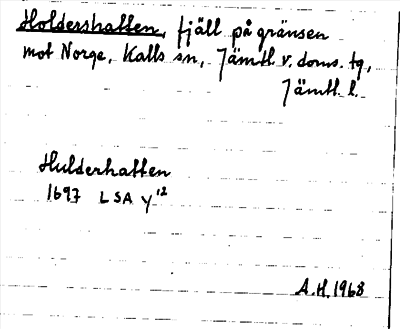 Holdershatten, fjäll på gränsen
mot Norge, Kalls sn, Jämtl. v. doms. tg,
Jämtl. l.
Hulderhatten
1697 LSA Y¹²
A.H. 1968